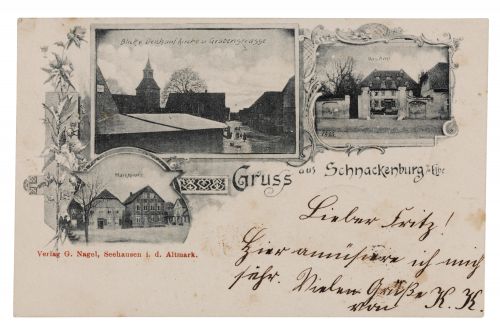 Blick v. Deich auf Kirche u. Grabenstrasse
Marktplatz
Gruss aus Schnackenburg a. Elbe
Lieber Fritz!
Hier amüsiere ich mich
sehr. Vielen Grüße
von K. K.
Verlag G. Nagel, Seehausen i. d. Altmark.